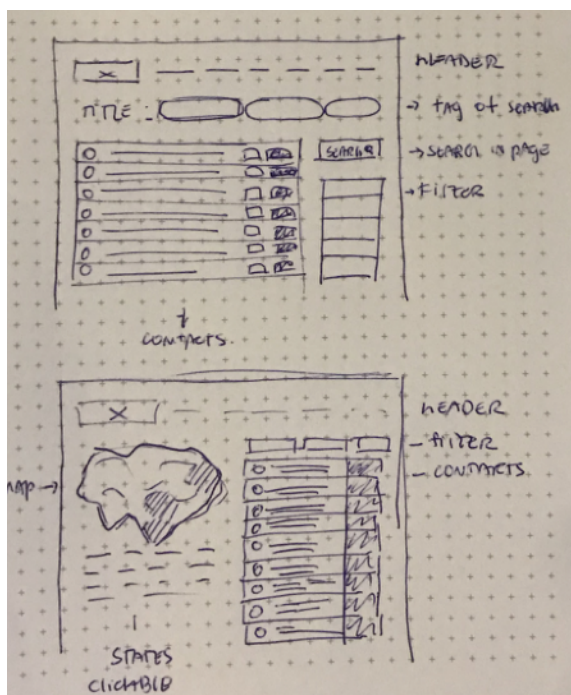 HEADER
TITLE :
→ TAG OF SEARCH
SEARCH
→ SEARCH IN PAGE
→ FILTER
CONTACTS
HEADER
- FILTER
- CONTACTS
MAP →
STATES
CLICKABLE